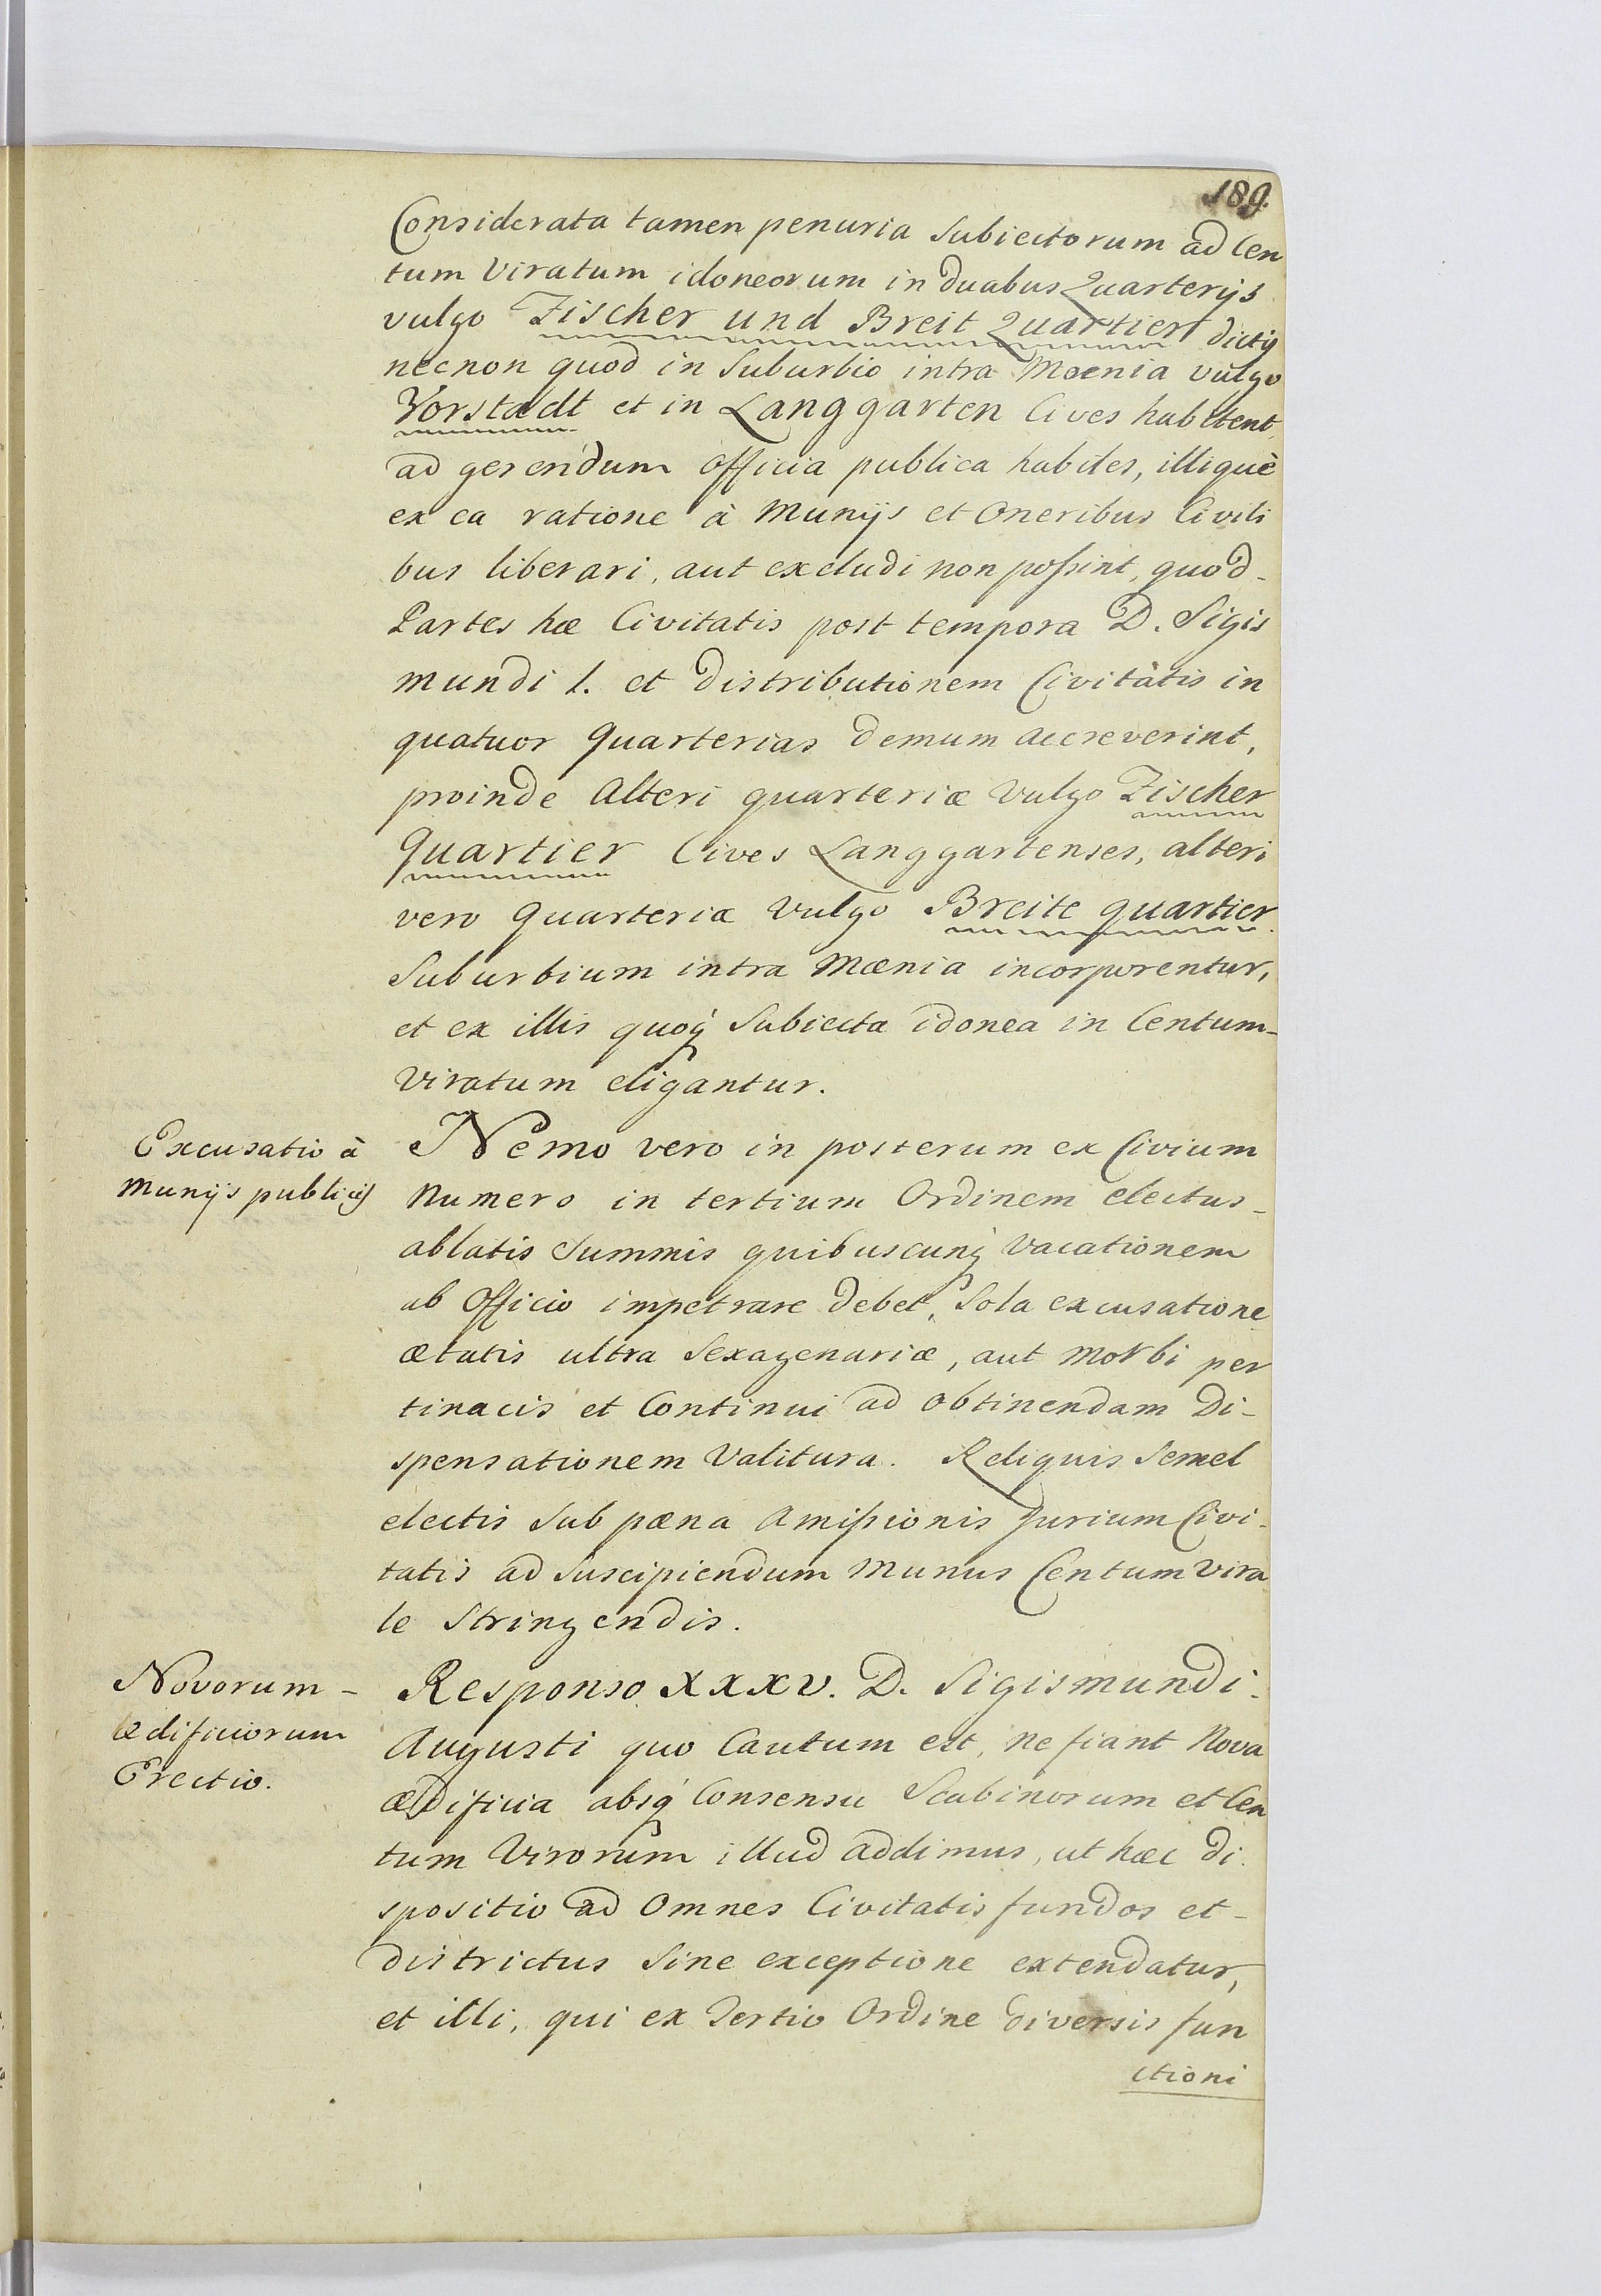 189.
Considerata tamen penuria Subiectorum ad Cen
tum Viratum idoneorum in duabus Quarterijs
vulgo Fischer und Breit Quartier dictis
necnon quod in Suburbio intra Moenia vulgo
Vorstadt et in Langgarten Cives habitent,
ad gerendum Officia publica habiles, illiquè
ex ea ratione à Munijs et Oneribus Civili
bus liberari, aut excludi non possint, quod-
Partes hæ Civitatis post tempora D. Sigis
mundi I. et Distributionem Civitatis in
quatuor Quarterias demum accreverint,
proinde Alteri quarteriæ Vulgo Fischer
Quartier Cives Langgartenses, alteri
vero Quarteriæ Vulgo Breite quartier
Suburbium intra Mænia incorporentur,
et ex illis quoq́ Subiecta idonea in Centum-
Viratum eligantur.
Excusatio à
Munijs publicis
Nemo vero in posterum ex Civium
Numero in tertium Ordinem electus-
ablatis Summis quibuscunq́ Vacationem
ab Officio impetrare debet, Sola excusatione
ætatis ultra Sexagenariæ, aut Morbi per
tinacis et Continui ad obtinendam Di-
spensationem Valitura. Reliquis Semel
electis Sub pæna Amissionis Jurium Civi-
tatis ad Suscipiendum Munus Centum Vira
le Stringendis.
Novorum-
ædificiorum
Erectio.
Responso XXXV. D. Sigismundi-
Augusti quo Cautum est, ne fiant Nova
ædificia absq́ Consensu Scabinorum et Cen
tum Virorum illud addimus, ut hæc Di-
spositio ad Omnes Civitatis fundos et-
districtus Sine exceptione extendatur,
et illi, qui ex Tertio Ordine diversis fun
ctioni